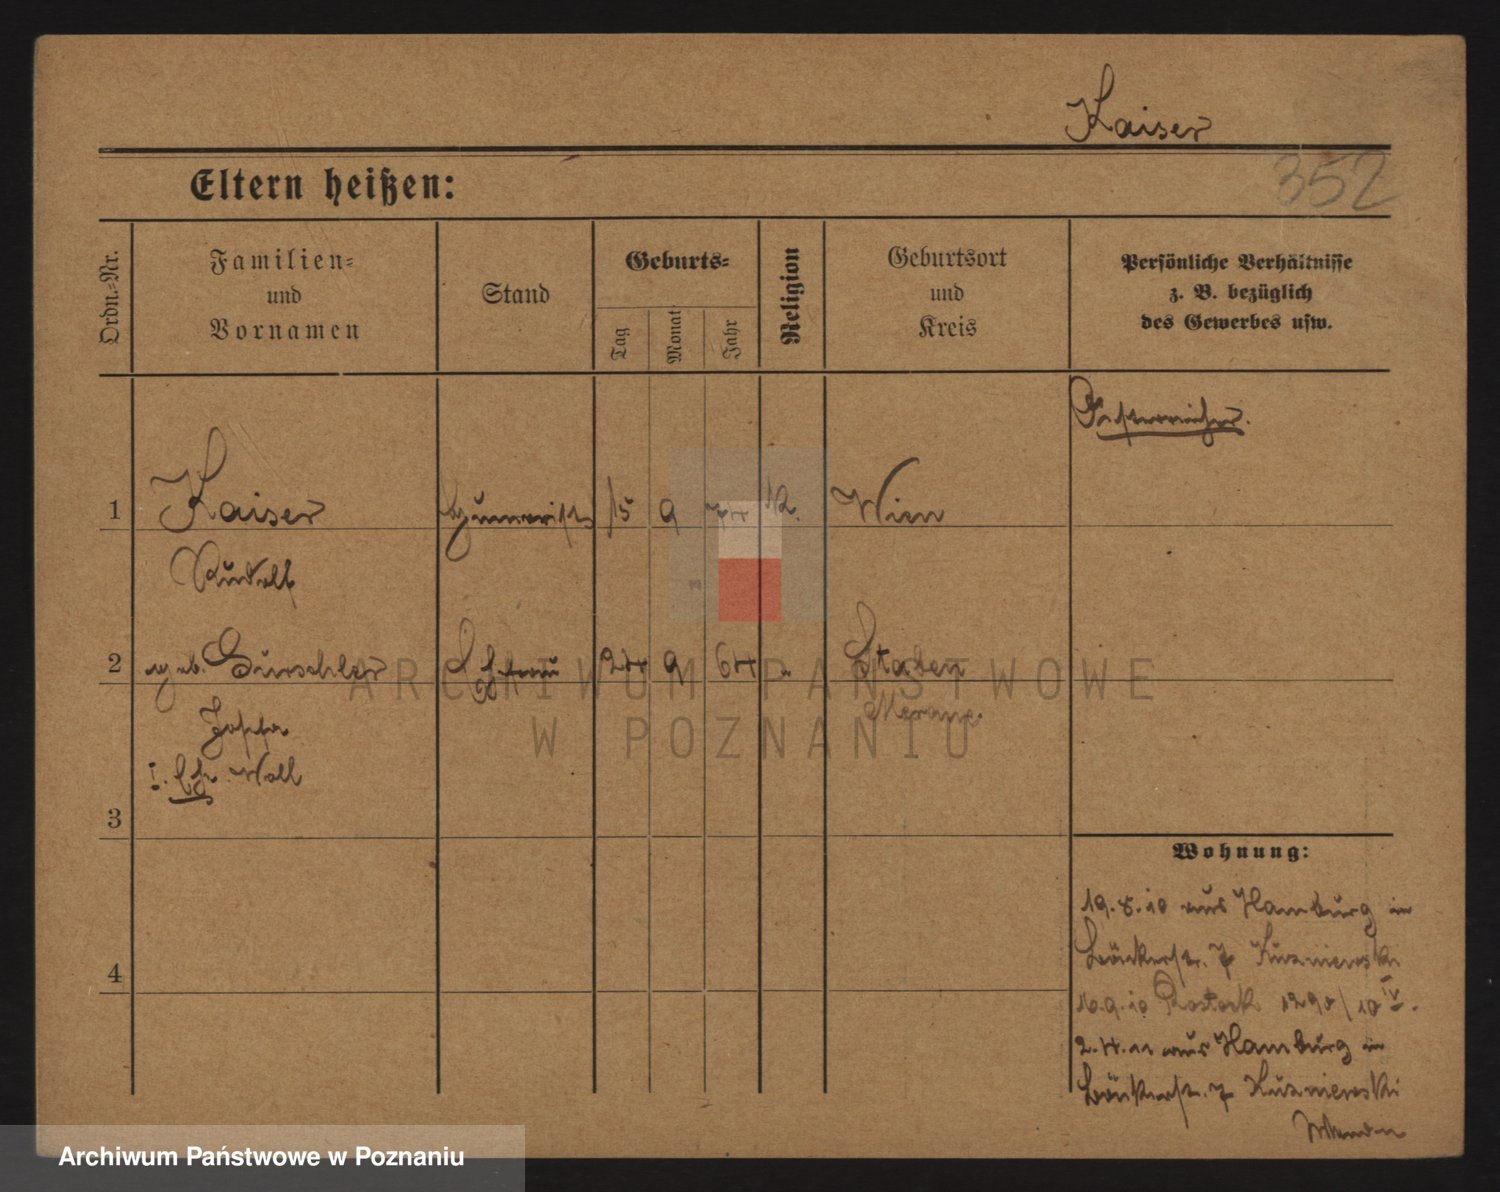 Kaiser
352
Eltern heißen:
Ordn.-Nr.
Familien-
und
Vornamen
Stand
Geburts-
Tag
Monat
Jahr
Religion
Geburtsort
und
Kreis
Persönliche Verhältnisse
z. B. bezüglich
des Gewerbes usw.
Österreicher.
1 Kaiser 15 9 74 k. Wien
Rudolf
2 geb. Ehefrau 24 9 64 Staben
Josefa
I. Eh. Woll
Meran
3
Wohnung:
19.8.10 aus Hamburg in
Bäckerstr. 7 Kuzniewski
16.9.10 Rostock 1290/10 IV.
4
2.4.11 aus Hamburg in
Bäckerstr. 7 Kuzniewski
ARCHIWUM PAŃSTWOWE
W POZNANIU
Archiwum Państwowe w Poznaniu